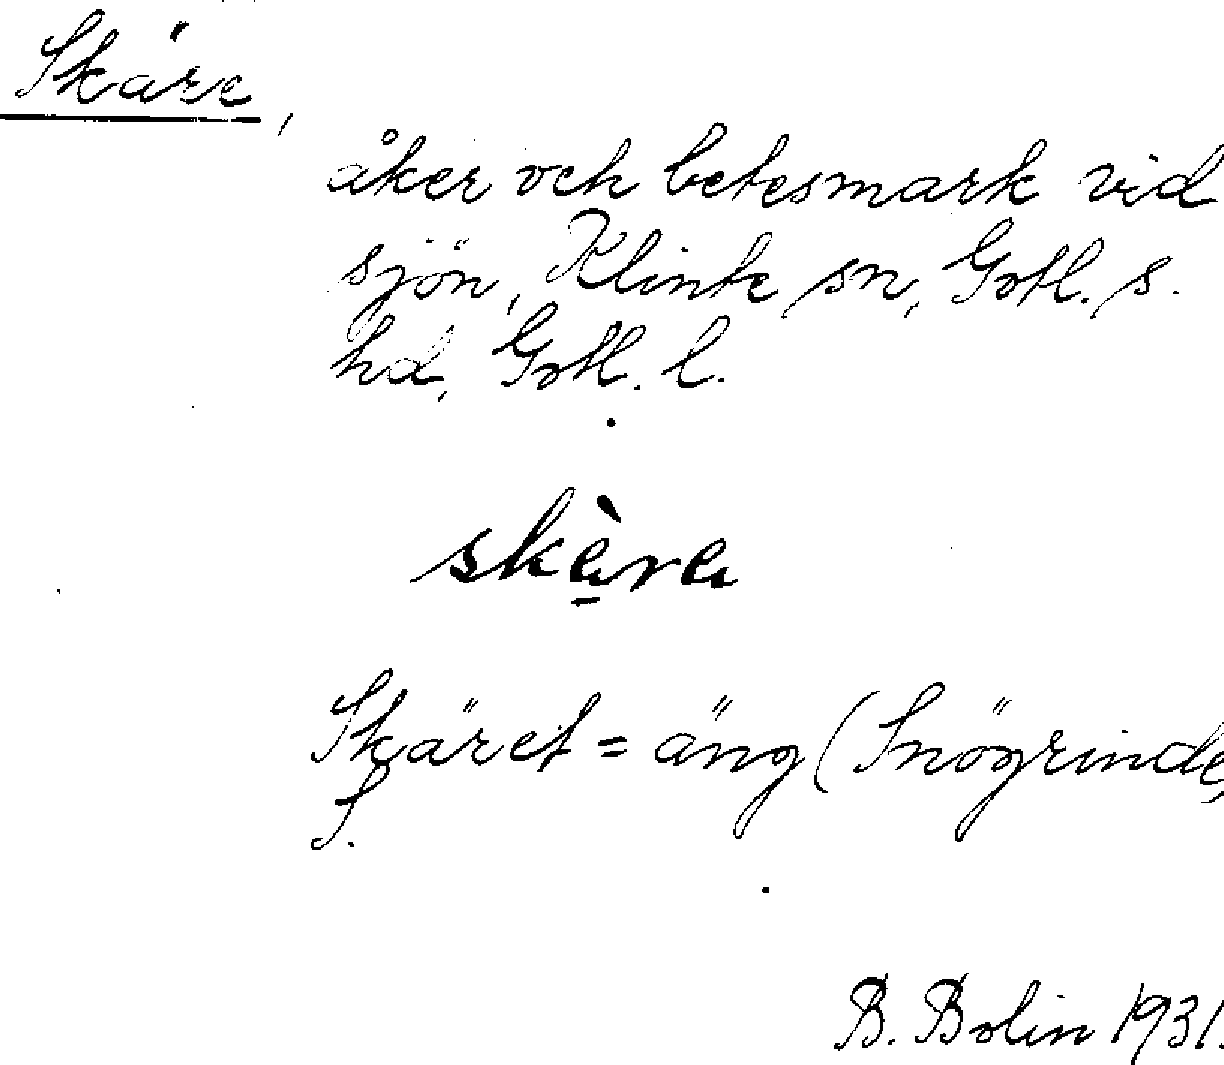 Skäre,
åker och betesmark vid
sjön, Klinte sn, Gotl. s.
hd, Gotl. l.
skère
Skäret = äng (Snögrinde,
S.
B. Bolin 1931.